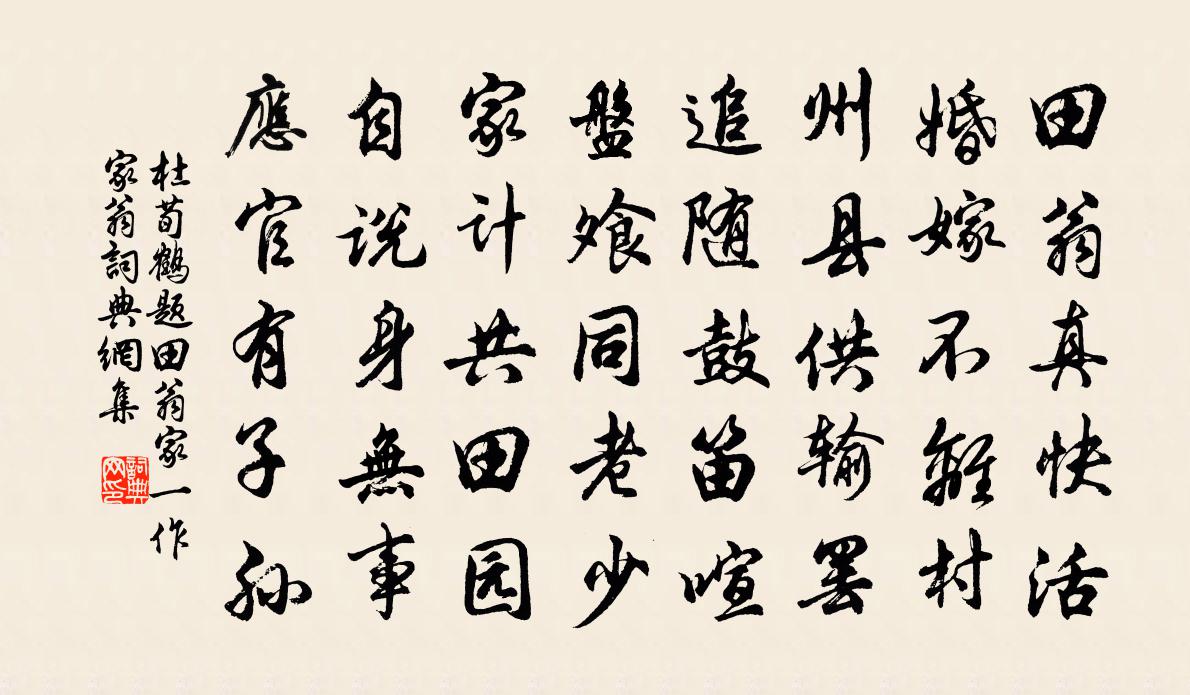 田翁真快活
婚嫁不離村
州县供输罢
追随鼓笛喧
盤飧同老少
家计共田园
自说身無事
應官有子孙
杜荀鶴题田翁家一作
家翁詞典網集
詞典
网印